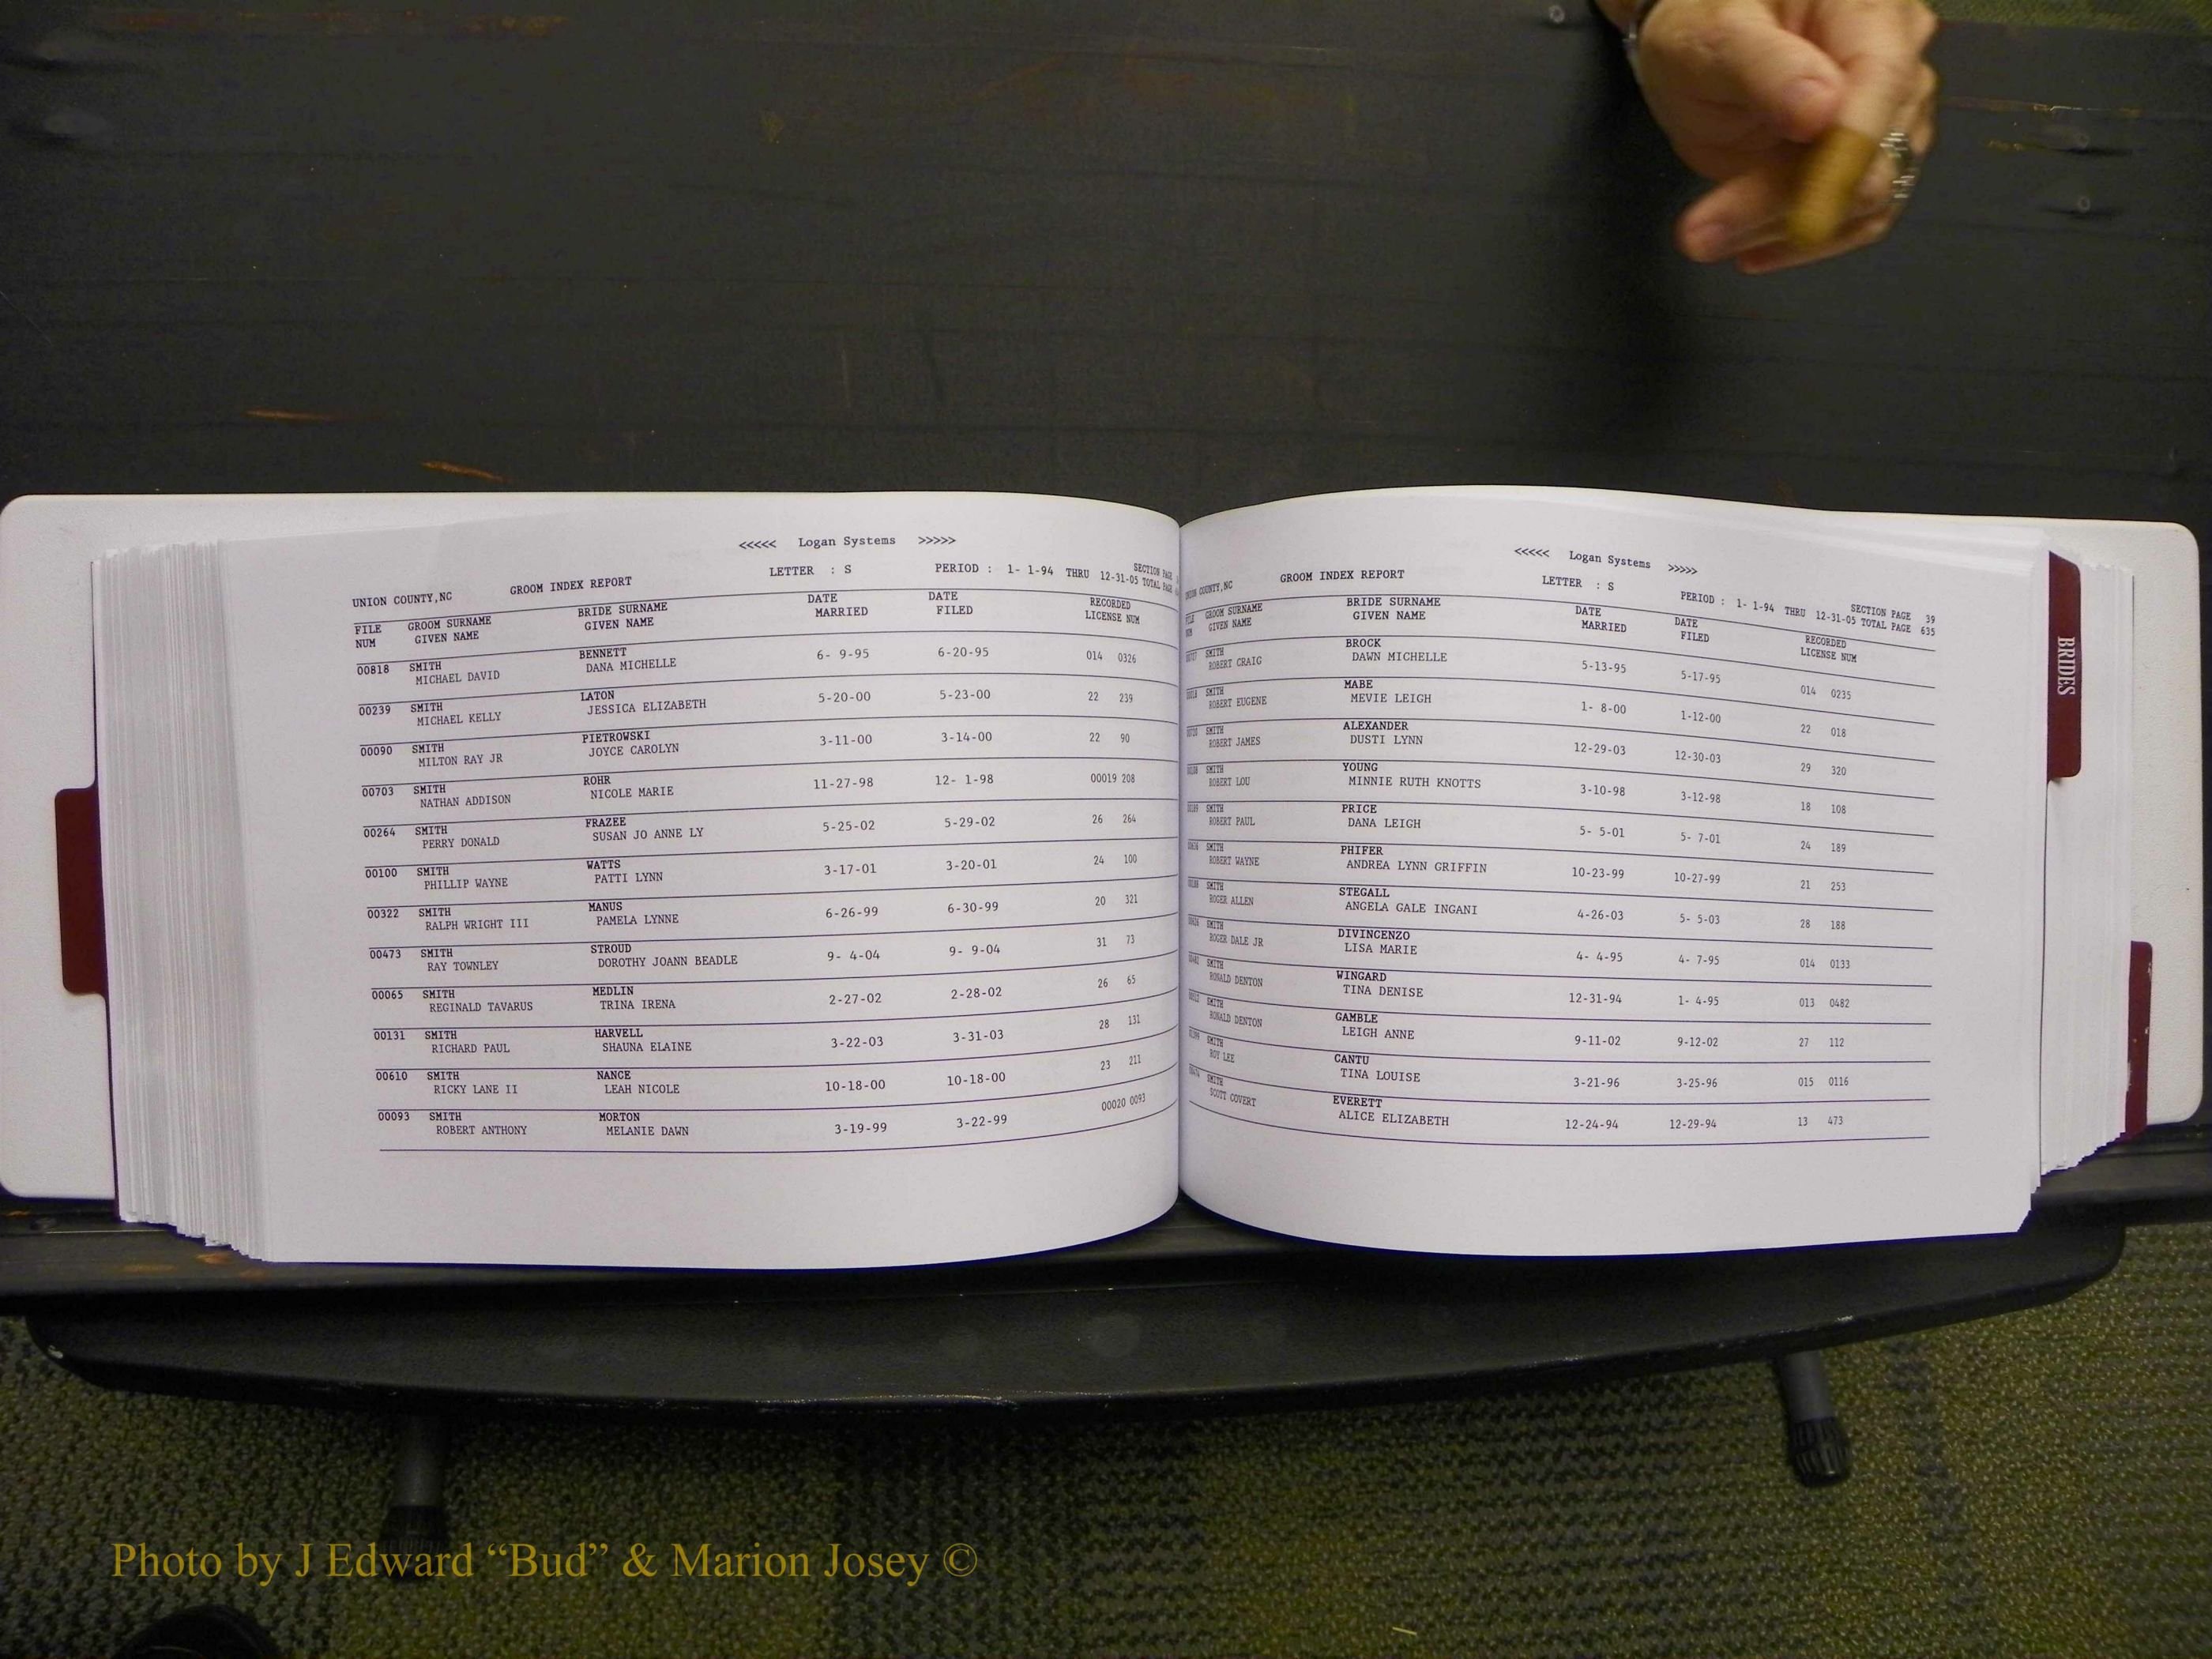 <<<<< Logan Systems >>>>>
UNION COUNTY,NC GROOM INDEX REPORT LETTER : S PERIOD : 1- 1-94 THRU 12-31-05 SECTION PAGE
TOTAL PAGE
FILE GROOM SURNAME BRIDE SURNAME DATE DATE RECORDED
NUM GIVEN NAME GIVEN NAME MARRIED FILED LICENSE NUM
00818 SMITH BENNETT 6- 9-95 6-20-95 014 0326
MICHAEL DAVID DANA MICHELLE
00239 SMITH LATON 5-20-00 5-23-00 22 239
MICHAEL KELLY JESSICA ELIZABETH
00090 SMITH PIETROWSKI 3-11-00 3-14-00 22 90
MILTON RAY JR JOYCE CAROLYN
00703 SMITH ROHR 11-27-98 12- 1-98 00019 208
NATHAN ADDISON NICOLE MARIE
00264 SMITH FRAZEE 5-25-02 5-29-02 26 264
PERRY DONALD SUSAN JO ANNE LY
00100 SMITH WATTS 3-17-01 3-20-01 24 100
PHILLIP WAYNE PATTI LYNN
00322 SMITH MANUS 6-26-99 6-30-99 20 321
RALPH WRIGHT III PAMELA LYNNE
00473 SMITH STROUD 9- 4-04 9- 9-04 31 73
RAY TOWNLEY DOROTHY JOANN BEADLE
00065 SMITH MEDLIN 2-27-02 2-28-02 26 65
REGINALD TAVARUS TRINA IRENA
00131 SMITH HARVELL 3-22-03 3-31-03 28 131
RICHARD PAUL SHAUNA ELAINE
00610 SMITH NANCE 10-18-00 10-18-00 23 211
RICKY LANE II LEAH NICOLE
00093 SMITH MORTON 3-19-99 3-22-99 00020 0093
ROBERT ANTHONY MELANIE DAWN
<<<<< Logan Systems >>>>>
UNION COUNTY,NC GROOM INDEX REPORT LETTER : S PERIOD : 1- 1-94 THRU 12-31-05 SECTION PAGE 39
TOTAL PAGE 635
FILE GROOM SURNAME BRIDE SURNAME DATE DATE RECORDED
NUM GIVEN NAME GIVEN NAME MARRIED FILED LICENSE NUM
SMITH BROCK 5-13-95 5-17-95 014 0235
ROBERT CRAIG DAWN MICHELLE
SMITH MABE 1- 8-00 1-12-00 22 018
ROBERT EUGENE MEVIE LEIGH
SMITH ALEXANDER 12-29-03 12-30-03 29 320
ROBERT JAMES DUSTI LYNN
SMITH YOUNG 3-10-98 3-12-98 18 108
ROBERT LOU MINNIE RUTH KNOTTS
SMITH PRICE 5- 5-01 5- 7-01 24 189
ROBERT PAUL DANA LEIGH
SMITH PHIFER 10-23-99 10-27-99 21 253
ROBERT WAYNE ANDREA LYNN GRIFFIN
SMITH STEGALL 4-26-03 5- 5-03 28 188
ROGER ALLEN ANGELA GALE INGANI
SMITH DIVINCENZO 4- 4-95 4- 7-95 014 0133
ROGER DALE JR LISA MARIE
SMITH WINGARD 12-31-94 1- 4-95 013 0482
RONALD DENTON TINA DENISE
SMITH GAMBLE 9-11-02 9-12-02 27 112
RONALD DENTON LEIGH ANNE
SMITH CANTU 3-21-96 3-25-96 015 0116
ROY LEE TINA LOUISE
SMITH EVERETT 12-24-94 12-29-94 13 473
SCOTT COVERT ALICE ELIZABETH
BRIDES
Photo by J Edward “Bud” & Marion Josey ©